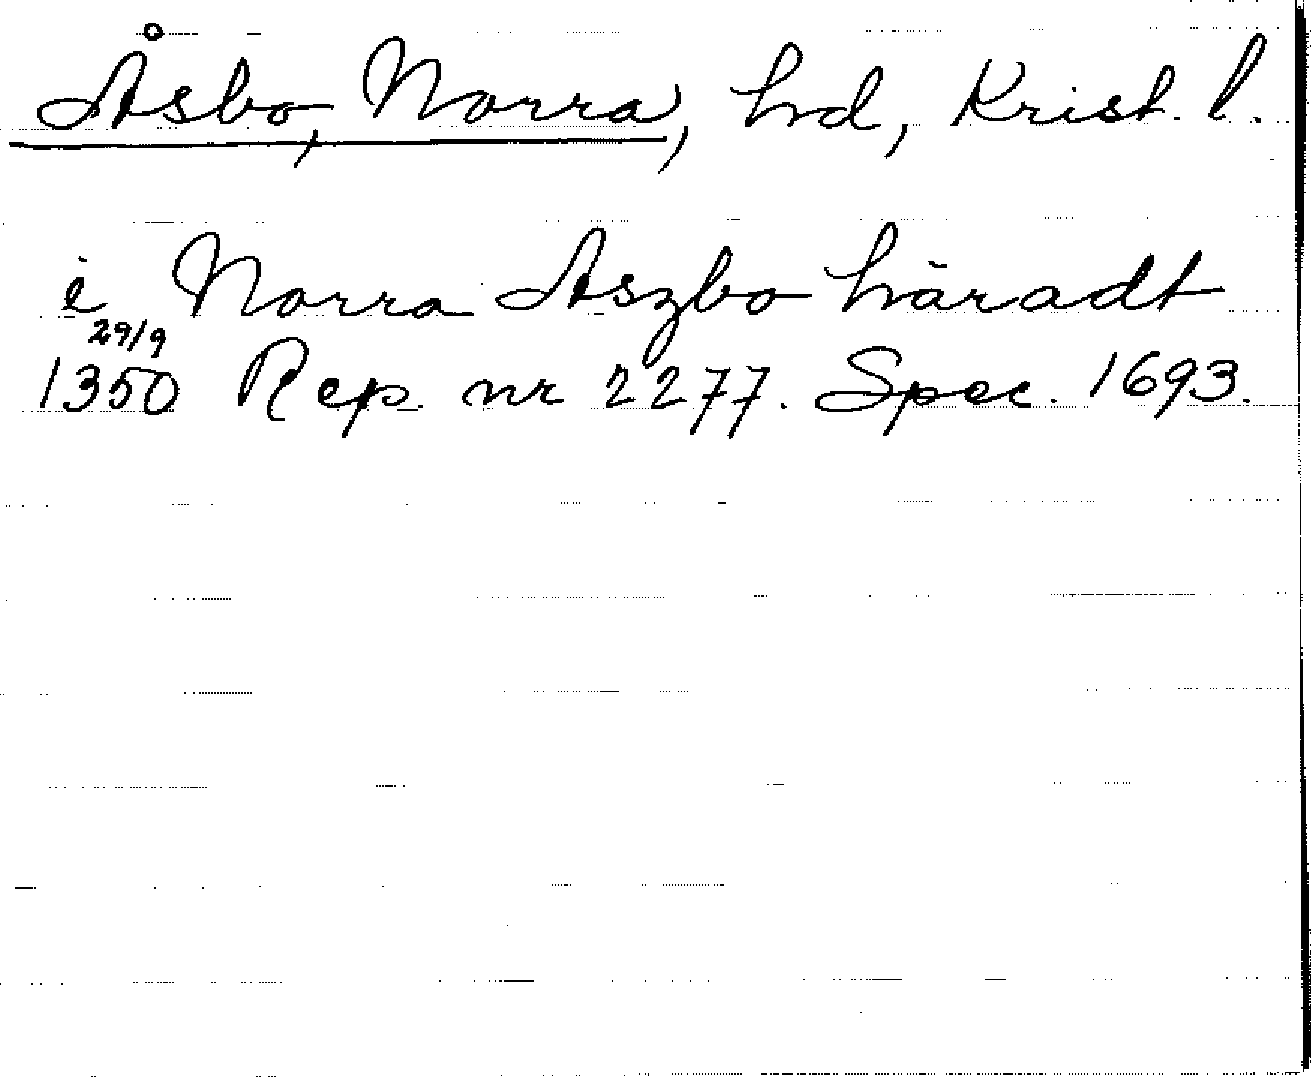 Åsbo, Norra, hd, Krist. l.
i Norra Aszbo häradt
29/9
1350 Rep. nr 2277. Spec. 1693.